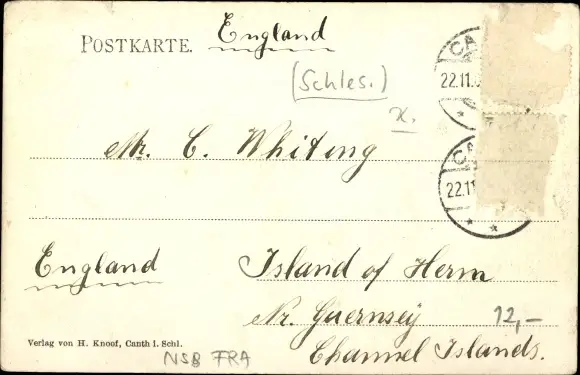 POSTKARTE. England
(Schles.)
x.
CA
22.11.
CA
22.11
Mr. C. Whiting
England
Island of Herm
Nr. Guernsey
12,–
Channel Islands.
Verlag von H. Knoof, Canth i. Schl.
NSB FRA